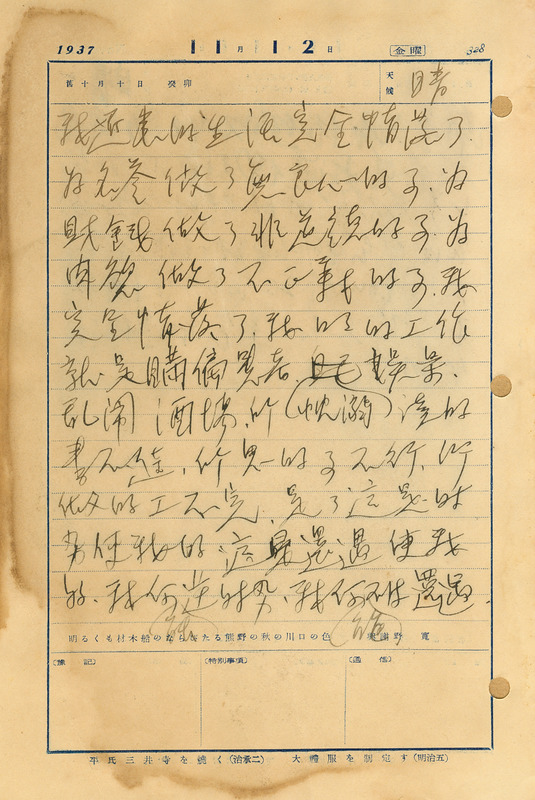 1937 11月12日 金曜 328
舊十月十日 癸卯 天候 晴
我近來的生活完全惰落了.
為名譽做了無良心的事.為
財錢做了非道德的事.為
肉慾做了不正義的事.我
完全惰落了.我的工作
就是瞞偏
亂鬧酒場.所(沈溺)讀的
書不達,所思的事不行,所
做的工不完.是了這是時
勢使我的這是還遇使我
的.我何逆時勢,我何不怯還遇.
明るくも材木船のならびたる熊野の秋の川口の色 與謝野 寬
〔豫記〕 〔特別事項〕 〔通信〕
平氏三井寺を燒く(治承二) 大禮服を制定す(明治五)